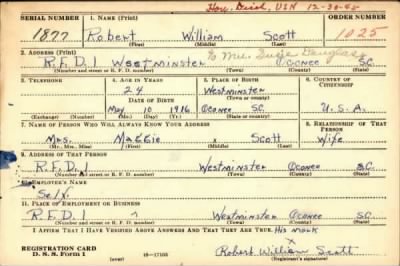 Hon. Disch, USN 12-30-45
SERIAL NUMBER 1. NAME (Print) ORDER NUMBER
1877 Robert William Scott 1025
(First) (Middle) (Last)
2. ADDRESS (Print) % Mrs. Susie Douglass
R.F.D. 1 Westminster Oconee S.C.
(Number and street or R. F. D. number) (Town) (County) (State)
3. TELEPHONE 4. AGE IN YEARS 5. PLACE OF BIRTH 6. COUNTRY OF CITIZENSHIP
24 Westminster
DATE OF BIRTH (Town or county)
May 10 1916 Oconee S.C. U.S.A.
(Exchange) (Number) (Mo.) (Day) (Yr.) (State or country)
7. NAME OF PERSON WHO WILL ALWAYS KNOW YOUR ADDRESS 8. RELATIONSHIP OF THAT PERSON
Mrs. Maggie x Scott Wife
(Mr., Mrs., Miss) (First) (Middle) (Last)
9. ADDRESS OF THAT PERSON
R.F.D. 1 Westminster Oconee S.C.
(Number and street or R. F. D. number) (Town) (County) (State)
10. EMPLOYER'S NAME
Self
11. PLACE OF EMPLOYMENT OR BUSINESS
R.F.D. 1 Westminster Oconee S.C.
(Number and street or R. F. D. number) (Town) (County) (State)
I AFFIRM THAT I HAVE VERIFIED ABOVE ANSWERS AND THAT THEY ARE TRUE. His mark
x
REGISTRATION CARD Robert William Scott
D. S. S. Form 1 (over) 16-17105 (Registrant's signature)